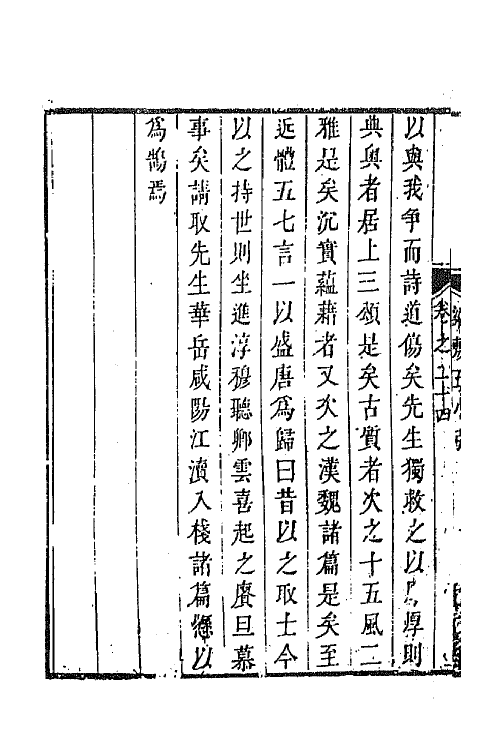 卷之二十四
以與我爭而詩道傷矣先生獨救之以厚則
典與者居上三頌是矣古質者次之十五風二
雅是矣沉實蘊藉者又次之漢魏諸篇是矣至
近體五七言一以盛唐為歸曰昔以之取士今
以之持世則坐進淳穆聽鄉雲喜起之賡旦暮
事矣請取先生華岳咸陽江瀆入棧諸篇懸以
為鵠焉